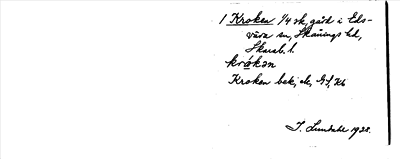 1 Kroken 1/4 sk, gård i Els-
våra sn, Skånings hd,
Skarab. l.
kråkən
Kroken bek, ck, GS, Kb
I. Lundahl 1928.